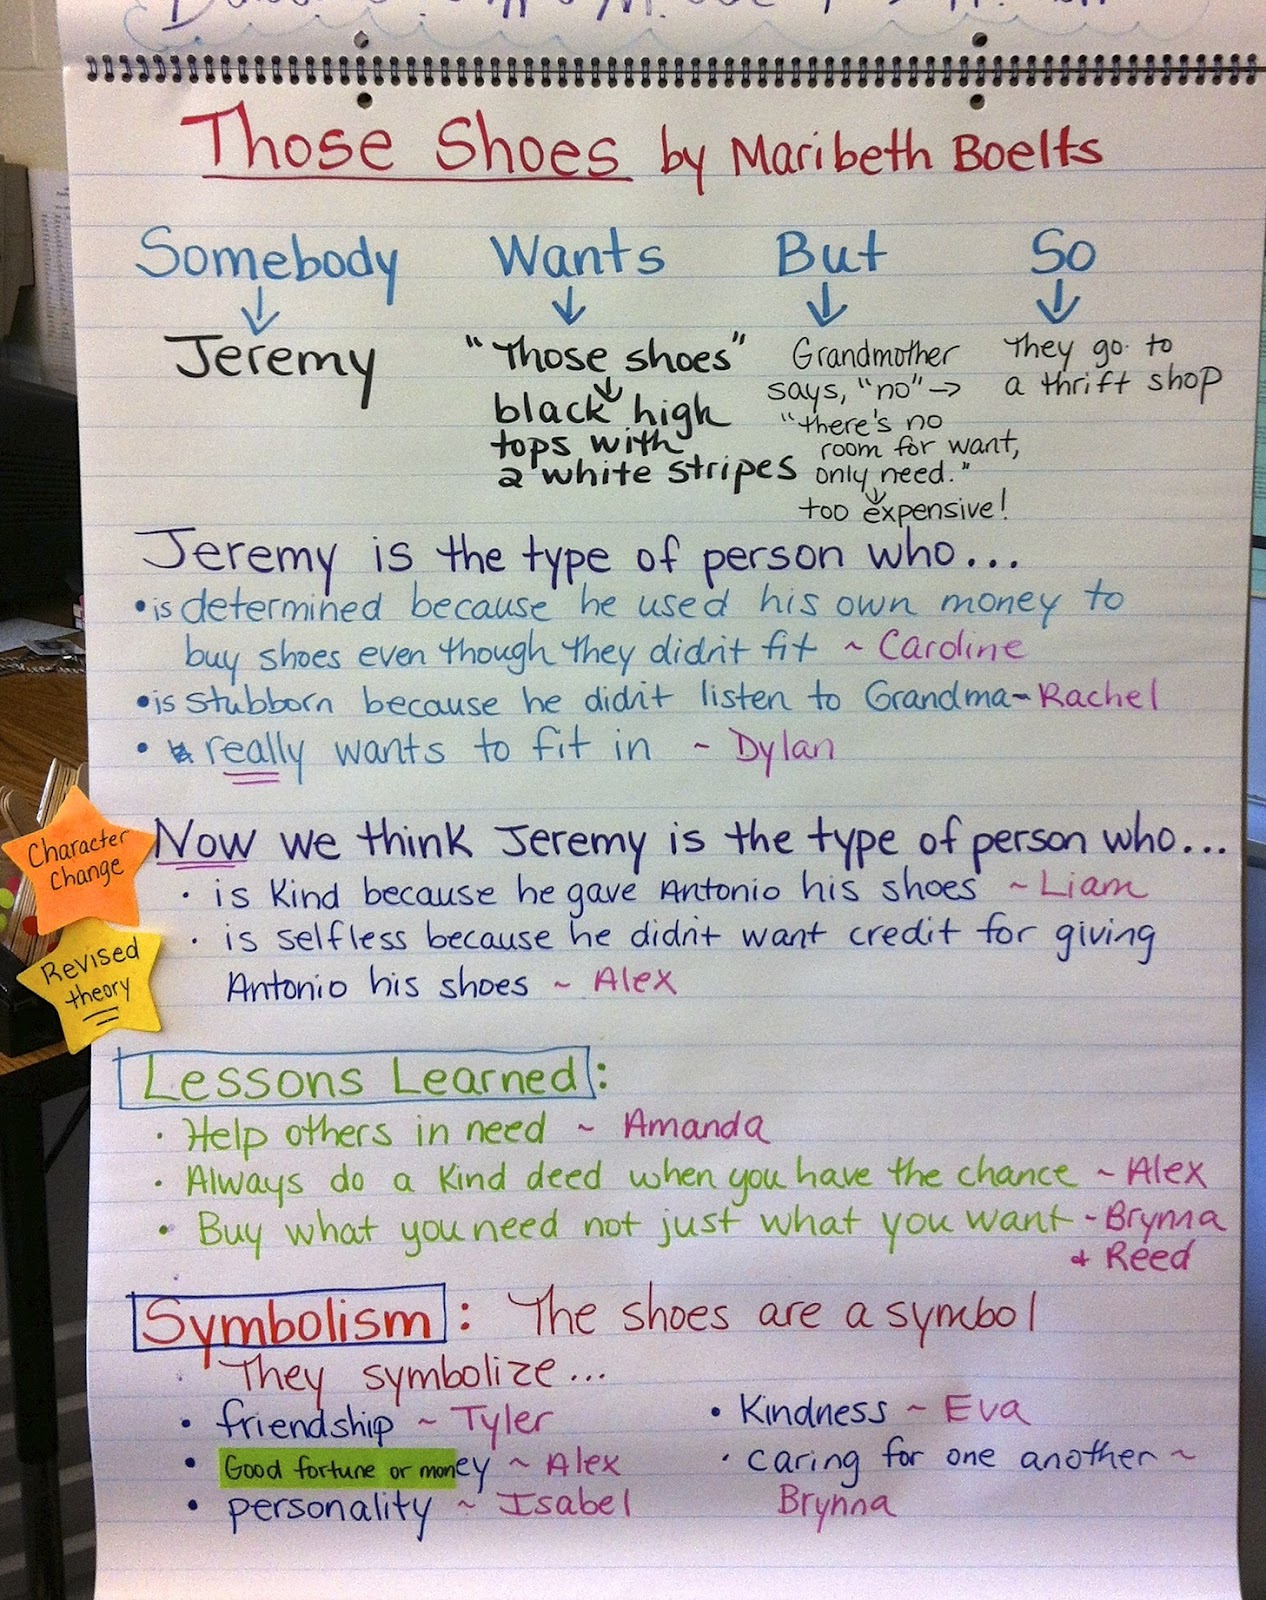 Those Shoes by Maribeth Boelts
Somebody Wants But So
Jeremy
"Those shoes"
black high
tops with
2 white stripes
Grandmother
says, "no" →
"there's no
room for want,
only need."
too expensive!
They go to
a thrift shop
Jeremy is the type of person who...
• is determined because he used his own money to
buy shoes even though they didn't fit ~ Caroline
• is stubborn because he didn't listen to Grandma - Rachel
• really wants to fit in ~ Dylan
Character
Change
Now we think Jeremy is the type of person who...
• is kind because he gave Antonio his shoes ~ Liam
• is selfless because he didn't want credit for giving
Antonio his shoes ~ Alex
Revised
theory
Lessons Learned:
• Help others in need ~ Amanda
• Always do a kind deed when you have the chance ~ Alex
• Buy what you need not just what you want - Brynna
+ Reed
Symbolism: The shoes are a symbol
They symbolize...
• friendship ~ Tyler
• Good fortune or money ~ Alex
• personality ~ Isabel
• Kindness ~ Eva
• caring for one another ~
Brynna